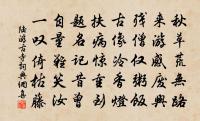 秋草荒無路
來游感廢興
殘僧仅粥飯
古像冷香燈
扶病憐重到
題名記昔曾
自量難笑汝
一叹倚枯藤
陆游古寺詞典網書